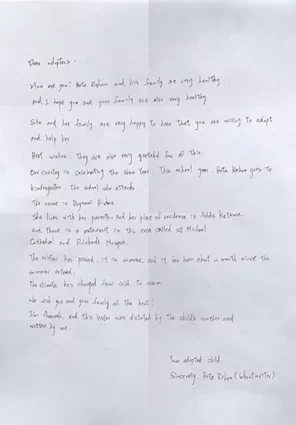 Dear adopters.
How are you? Beta Rehan and his family are very healthy.
and I hope you and your family are also very healthy
She and her family are very happy to hear that you are willing to adopt
and help her.
Best wishes. they are also very grateful for all this.
Our country is celebrating the New Year. This school year, Beta Rehan goes to
kindergarten. The school she attends
The name is Dagmawi Birhan
She lives with her parents, and her place of residence is Addis Ketema.
and there is a in this area called St Michael
Cathedral and
The winter has passed. it is summer, and it has been about a month since the
summer entered.
The climate has changed from cold to warm
We wish you and your family all the best!
I'm and this letter was dictated by the child's mother and
written by me.
Your adopted child
Sincerely, Beta Rehan (Ghostwriter)